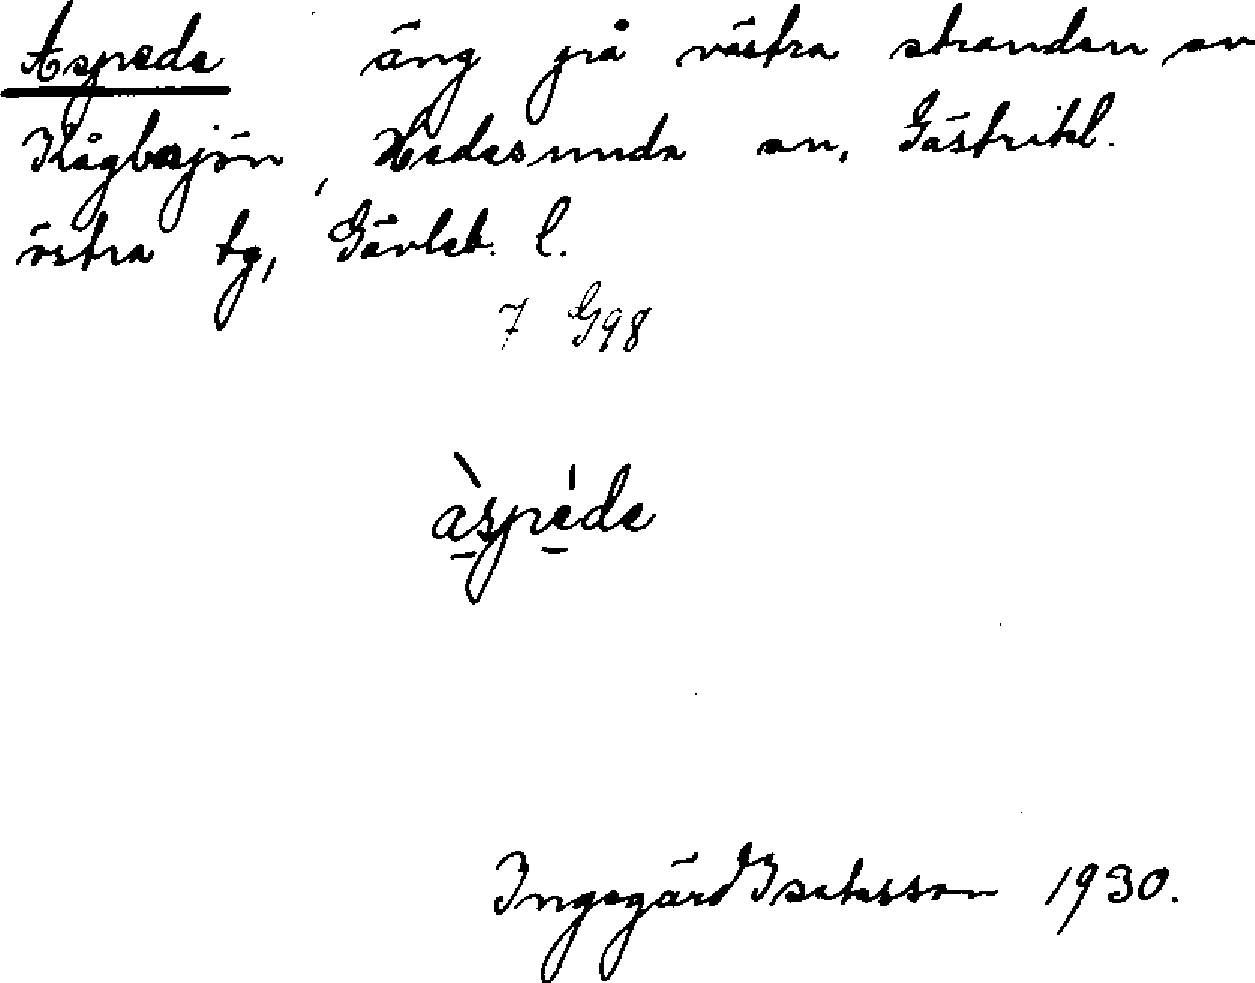 Aspede äng på västra stranden av
Kågbosjön, Hedesunda sn, Gästrikl.
östra tg, Gävleb. l.
7 G98
àspéde
Ingegärd Isaksson 1930.